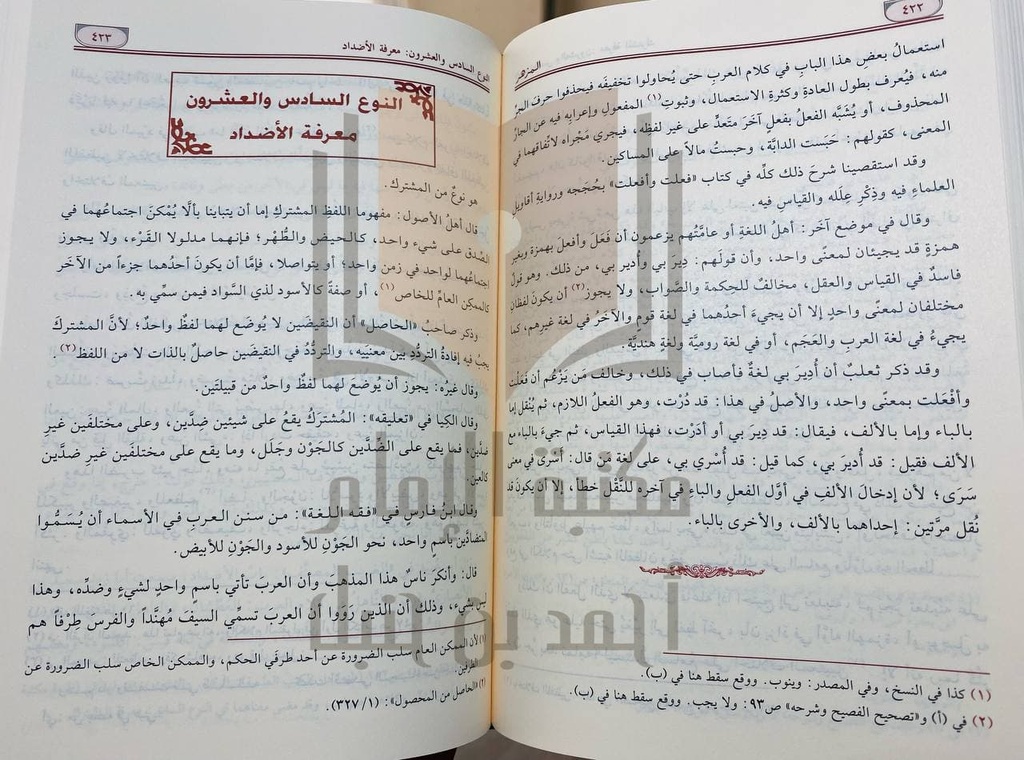 ٤٢٢
المزهر
استعمالُ بعض هذا البابِ في كلام العرب حتى يُحاولوا تخفيفَه فيحذفوا حرفَ الجرِّ
منه، فيُعرف بطول العادةِ وكثرةِ الاستعمال، وثبوتِ(١) المفعول وإعرابِه فيه عن الجارِّ
المحذوف، أو يُشَبَّه الفعلُ بفعلٍ آخرَ متعدٍّ على غير لفظِه، فيجري مَجْراه لاتّفاقهما في
المعنى، كقولهم: حَبَست الدابَّة، وحبستُ مالاً على المساكين.
وقد استقصينا شرحَ ذلك كلِّه في كتاب «فعلت وأفعلت» بحُجَجه وروايةِ أقاويلِ
العلماءِ فيه وذِكْر عِلَله والقياسِ فيه.
وقال في موضع آخَر: أهلُ اللغةِ أو عامَّتُهم يَزعمون أن فَعَلَ وأفعلَ بهمزة وبغيرِ
همزةٍ قد يجيئان لمعنًى واحد، وأن قولَهم: دِيرَ بي وأُدير بي، من ذلك. وهو قولٌ
فاسدٌ في القياس والعقل، مخالفٌ للحِكمة والصَّواب، ولا يجوز(٢) أن يكونَ لفظان
مختلفان لمعنًى واحدٍ إلا أن يجيءَ أحدُهما في لغة قومٍ والآخَرُ في لغة غيرِهم، كما
يجيءُ في لغة العربِ والعَجَم، أو في لغة روميَّة ولغة هنديَّة.
وقد ذكر ثعلبٌ أن أُدِيرَ بي لغةٌ فأصاب في ذلك، وخالف مَن يَزْعُم أن فَعَلْت
وأفْعَلت بمعنًى واحد، والأصلُ في هذا: قد دُرْت، وهو الفعلُ اللازم، ثم يُنْقل إما
بالباء وإما بالألف، فيقال: قد دِيرَ بي أو أدَرْت، فهذا القياس، ثم جيءَ بالباء مع
الألف فقيل: قد أُديرَ بي، كما قيل: قد أُسْري بي، على لغة مَن قال: أَسْرى في معنى
سَرَى؛ لأن إدخالَ الألفِ في أوَّل الفعلِ والباءِ في آخره للنَّقْل خطأ، إلا أن يكونَ قد
نُقل مرَّتين: إحداهما بالألف، والأخرى بالباء.
(١) كذا في النسخ، وفي المصدر: وينوب. ووقع سقط هنا في (ب).
(٢) في (أ) و«تصحيح الفصيح وشرحه» ص٩٣: ولا يجب. ووقع سقط هنا في (ب).
النوع السادس والعشرون: معرفة الأضداد
٤٢٣
النوع السادس والعشرون
معرفة الأضداد
هو نوعٌ من المشترك.
قال أهلُ الأصول: مفهوما اللفظِ المشتركِ إما أن يتباينا بألَّا يُمْكنَ اجتماعُهما في
الصِّدق على شيء واحد، كالحيض والطُّهْر؛ فإنهما مدلولا القَرْء، ولا يجوز
اجتماعُهما لواحد في زمن واحد؛ أو يتواصلا، فإمَّا أن يكونَ أحدُهما جزءاً من الآخَر
كالممكِن العامِّ للخاص(١)، أو صفةً كالأسود لذي السَّواد فيمن سمِّي به.
وذكر صاحبُ «الحاصل» أن النقيضَين لا يُوضَع لهما لفظٌ واحدٌ؛ لأنَّ المشتركَ
يجبُ فيه إفادةُ التردُّدِ بين معنَييه، والتردُّدُ في النقيضَين حاصلٌ بالذات لا من اللفظ(٢).
وقال غيرُه: يجوز أن يُوضعَ لهما لفظٌ واحدٌ من قبيلتَين.
وقال الكِيا في «تعليقه»: المُشتَرَكُ يقعُ على شيئين ضِدَّين، وعلى مختلفَين غيرِ
ضدَّين، فما يقع على الضِّدَّين كالجَوْن وجَلَل، وما يقع على مختلفَين غيرِ ضدَّين
كالعين.
وقال ابنُ فارس في «فقه اللغة»: من سنن العربِ في الأسماء أن يُسَمُّوا
المتضادَّين باسمٍ واحد، نحو الجَوْنِ للأسود والجَوْنِ للأبيض.
قال: وأنكَرَ ناسٌ هذا المذهبَ وأن العربَ تأتي باسم واحدٍ لشيءٍ وضدِّه، وهذا
ليس بشيء، وذلك أن الذين رَوَوا أن العربَ تسمِّي السيفَ مُهنَّداً والفرس طِرْفاً هم
(١) لأن الممكن العام سلب الضرورة عن أحد طرفَي الحكم، والممكن الخاص سلب الضرورة عن
الطرفين.
(٢) «الحاصل من المحصول»: (١/ ٣٢٧).
مكتبة الإمام
أحمد بن حنبل